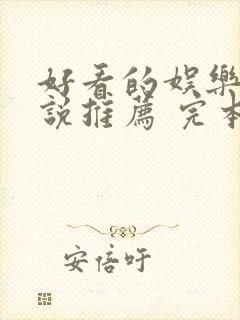 好看的娱樂
說推薦 完本
安倍吁